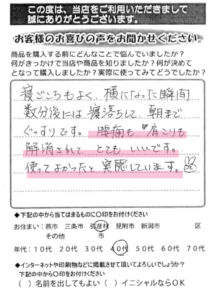 この度は、当店をご利用いただきまして
誠にありがとうございます。
お客様のお喜びの声をお聞かせください
商品を購入する前にどんなことで悩んでいましたか？
何がきっかけで当店や商品を知りましたか？何が決めて
となって購入しましたか？実際に使ってみてどうでしたか？
寝ごこちもよく、横になった瞬間
数分後には寝落ちして、朝まで
ぐっすりです。腰痛も肩こりも
解消されて とても いいです。
使ってよかったと実感しています。
◆下記の中から当てはまるものに○印をお付けください
お住まい：燕市 三条市 弥彦村 見附市 新潟市 区
その他 市
年代：10代 20代 30代 40代 50代 60代 70代
◆インターネットや印刷物などに掲載させて頂いてよろしいでしょうか？
下記の中から○印をお付けください
（ ）名前を出してもよい （ ）イニシャルならOK